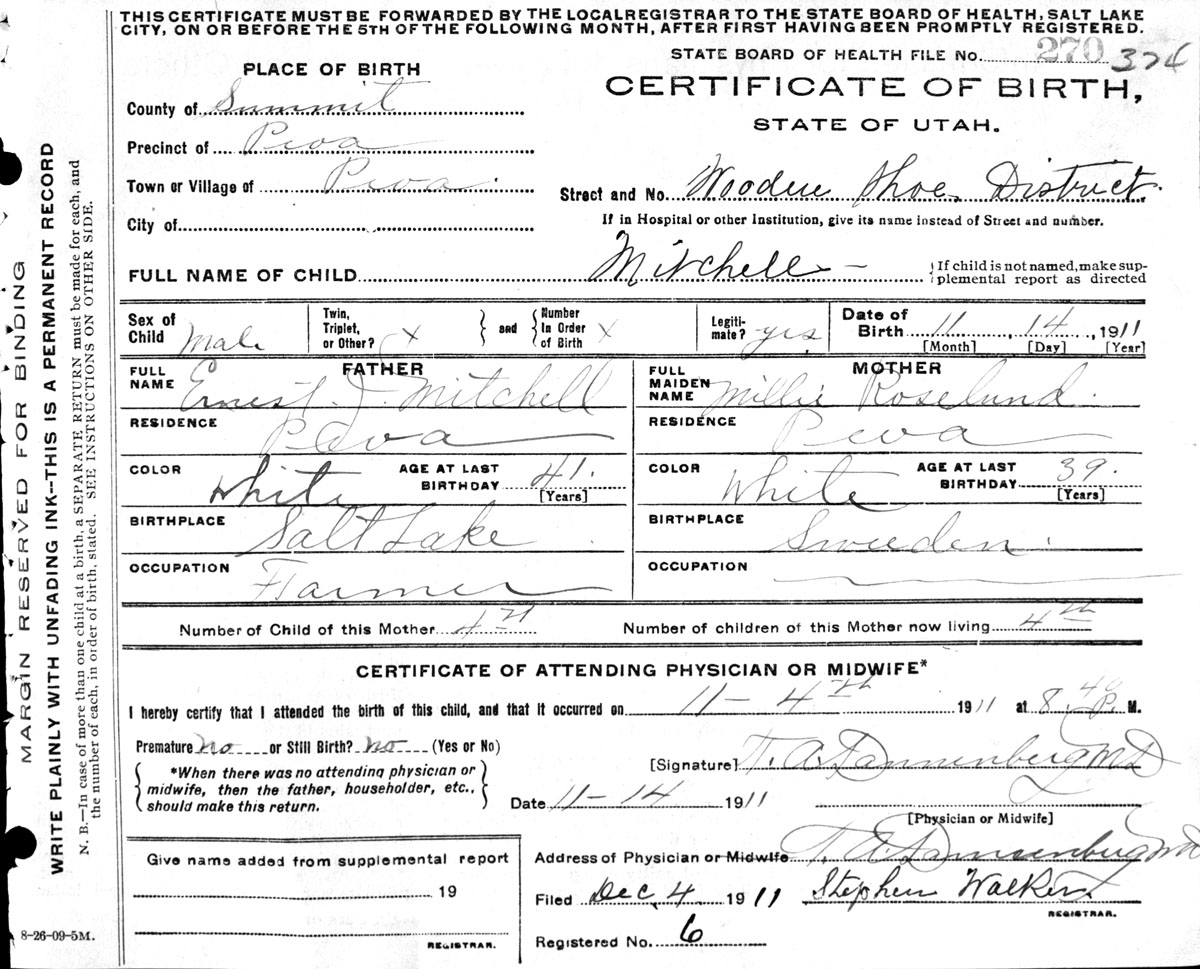 THIS CERTIFICATE MUST BE FORWARDED BY THE LOCAL REGISTRAR TO THE STATE BOARD OF HEALTH, SALT LAKE
CITY, ON OR BEFORE THE 5TH OF THE FOLLOWING MONTH, AFTER FIRST HAVING BEEN PROMPTLY REGISTERED.
STATE BOARD OF HEALTH FILE No. 270 374
PLACE OF BIRTH
CERTIFICATE OF BIRTH,
STATE OF UTAH.
County of Summit
Precinct of Peoa
Town or Village of Peoa
Street and No. Wooden Shoe District
City of
If in Hospital or other Institution, give its name instead of Street and number.
FULL NAME OF CHILD Mitchell
If child is not named, make sup-
plemental report as directed
Sex of Child Male
Twin, Triplet, or Other? X
and
Number In Order of Birth X
Legiti-mate? yes
Date of Birth 11 14, 1911
[Month] [Day] [Year]
FATHER
FULL NAME Ernest J. Mitchell
RESIDENCE Peoa
COLOR White AGE AT LAST BIRTHDAY 41. [Years]
BIRTHPLACE Salt Lake
OCCUPATION Farmer
MOTHER
FULL MAIDEN NAME Millie Roselund
RESIDENCE Peoa
COLOR White AGE AT LAST BIRTHDAY 39. [Years]
BIRTHPLACE Sweeden
OCCUPATION
Number of Child of this Mother 4th Number of children of this Mother now living 4th
CERTIFICATE OF ATTENDING PHYSICIAN OR MIDWIFE*
I hereby certify that I attended the birth of this child, and that it occurred on 11-4th 1911 at 8.40 P. M.
Premature no or Still Birth? no (Yes or No)
*When there was no attending physician or
midwife, then the father, householder, etc.,
should make this return.
[Signature] T. A. Dannenberg MD
Date 11-14 1911
[Physician or Midwife]
Give name added from supplemental report
19
REGISTRAR.
Address of Physician or Midwife T. A. Dannenberg MD
Filed Dec. 4 1911 Stephen Walker
REGISTRAR.
Registered No. 6
8-26-09-5M.
MARGIN RESERVED FOR BINDING
WRITE PLAINLY WITH UNFADING INK--THIS IS A PERMANENT RECORD
N. B.—In case of more than one child at a birth, a SEPARATE RETURN must be made for each, and
the number of each, in order of birth, stated. SEE INSTRUCTIONS ON OTHER SIDE.